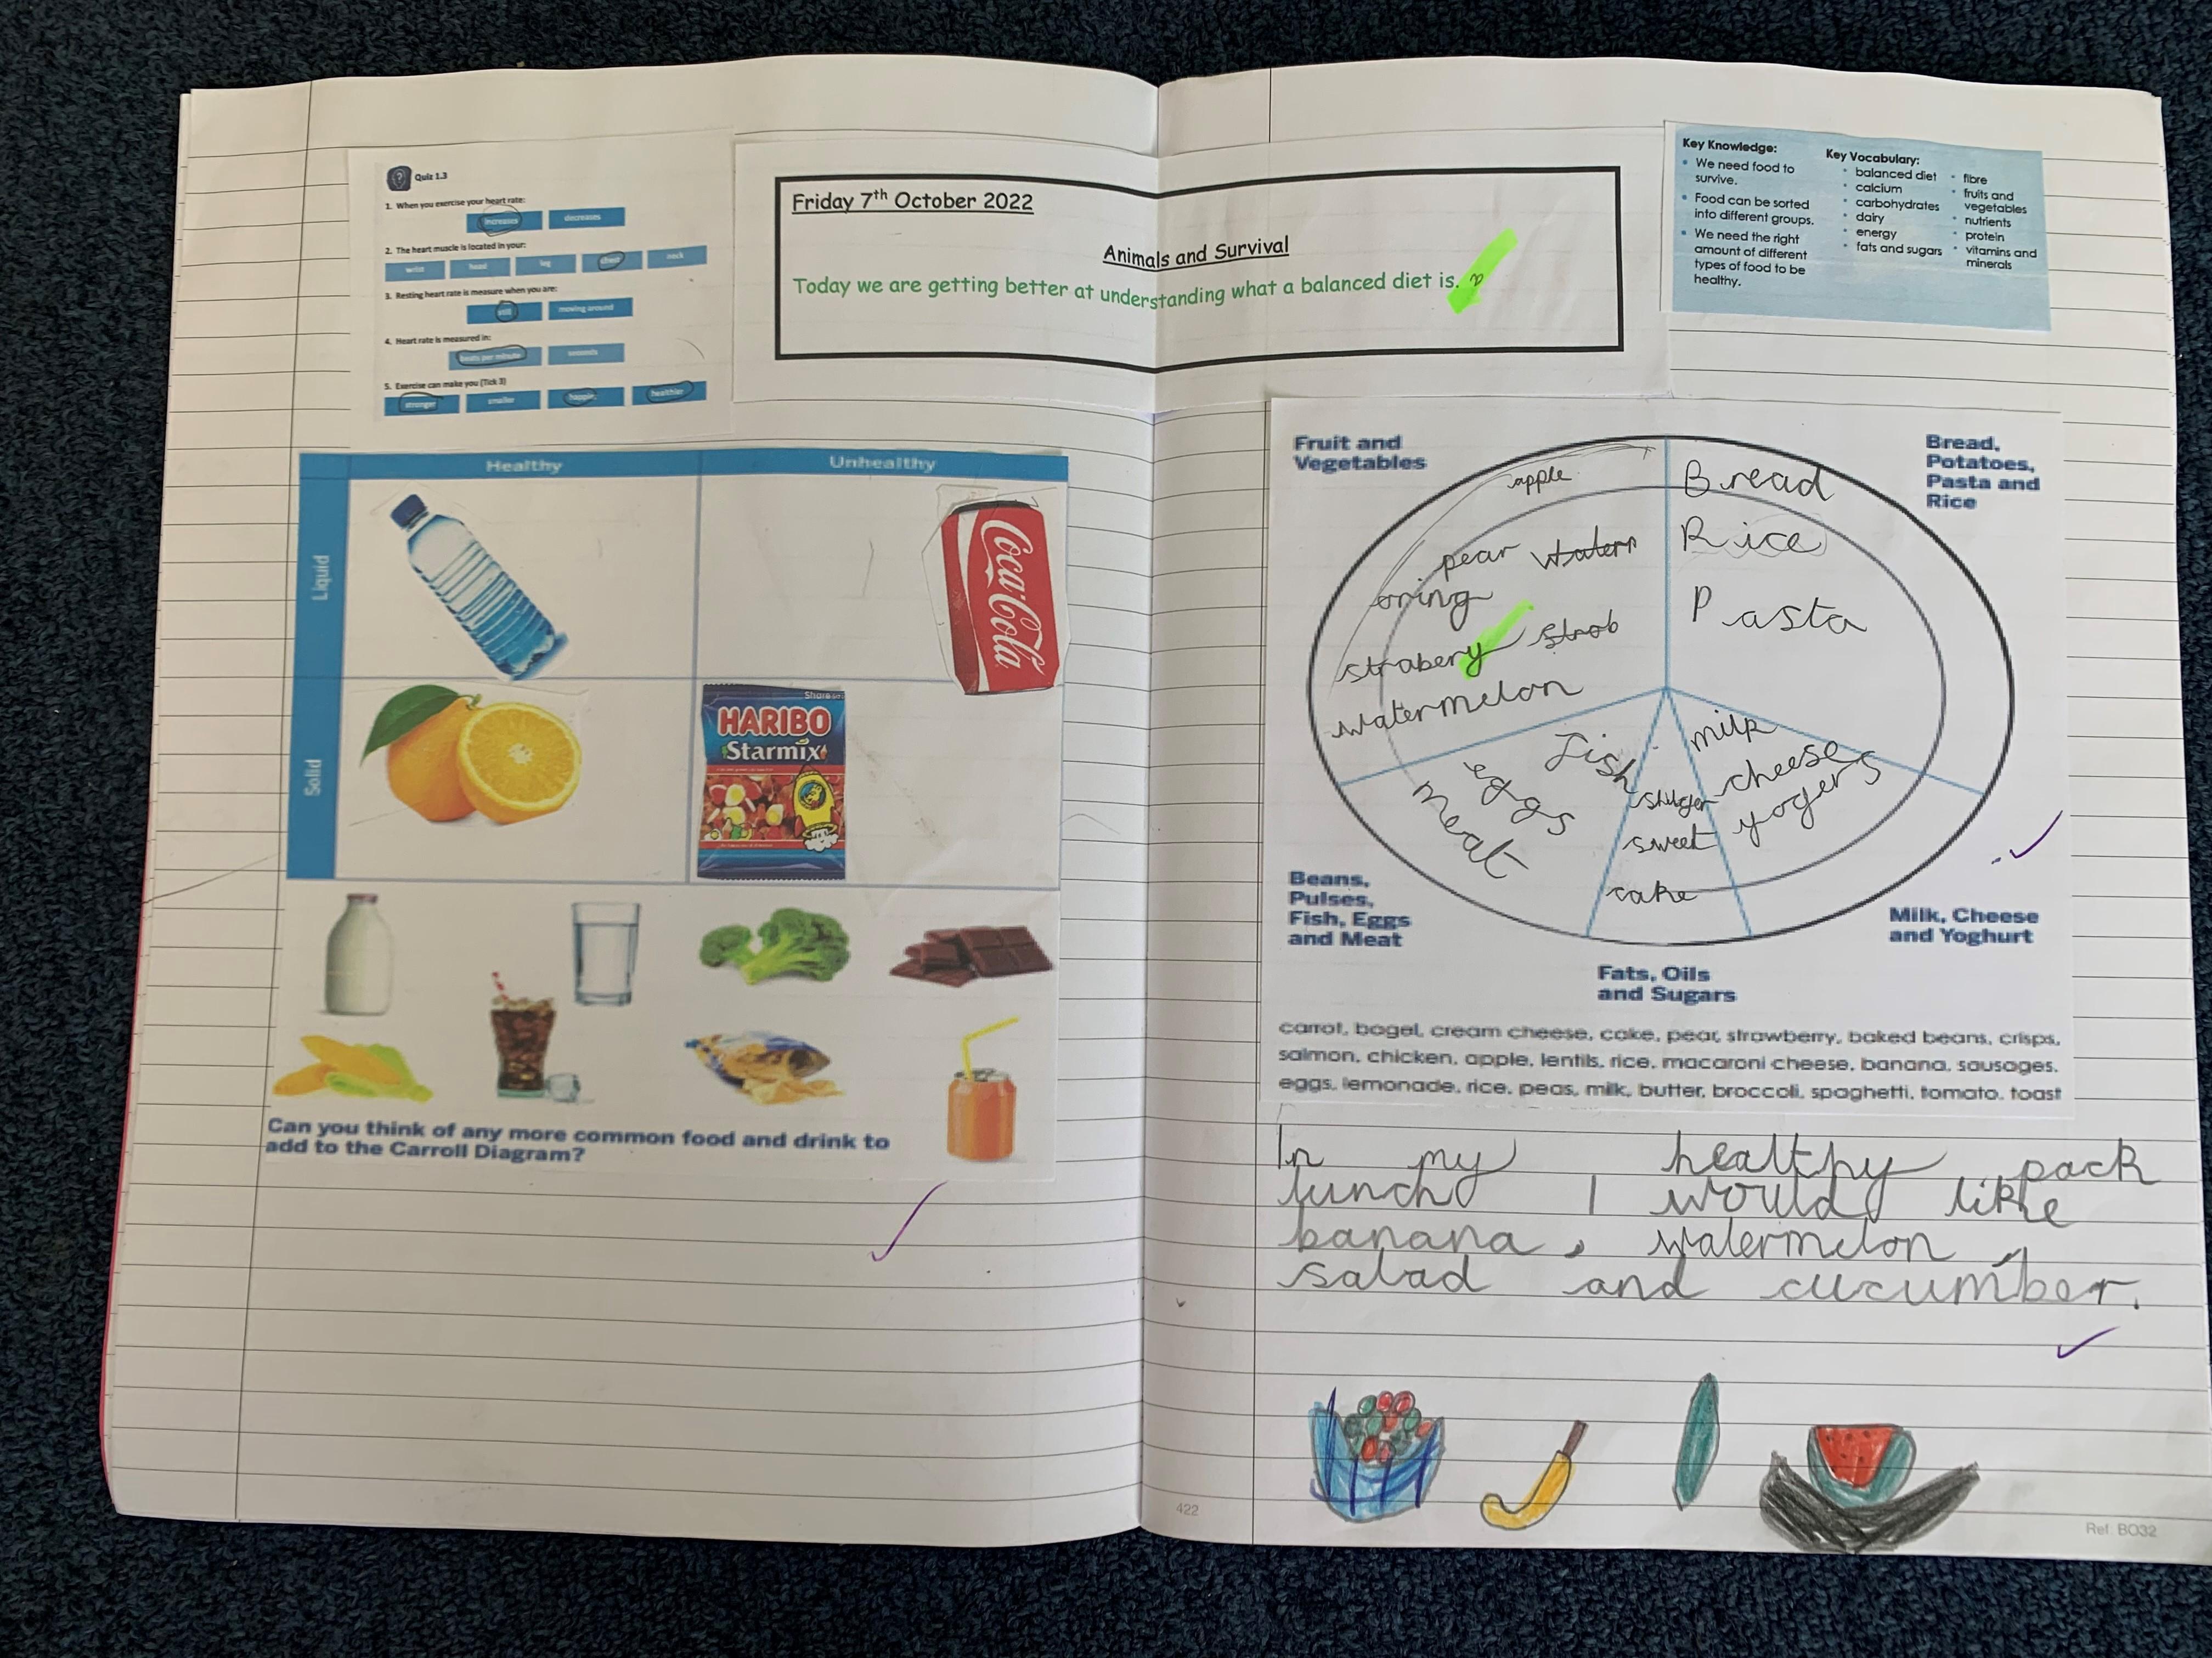 Quiz 1.3
1. When you exercise your heart rate:
increases decreases
2. The heart muscle is located in your:
wrist head leg chest neck
3. Resting heart rate is measure when you are:
still moving around
4. Heart rate is measured in:
beats per minute seconds
5. Exercise can make you (Tick 3)
stronger smaller happier healthier
Friday 7th October 2022
Animals and Survival
Today we are getting better at understanding what a balanced diet is.
Key Knowledge:
We need food to
survive.
Food can be sorted
into different groups.
We need the right
amount of different
types of food to be
healthy.
Key Vocabulary:
balanced diet
calcium
carbohydrates
dairy
energy
fats and sugars
fibre
fruits and
vegetables
nutrients
protein
vitamins and
minerals
Healthy Unhealthy
Liquid
Coca-Cola
Solid
Share
HARIBO
Starmix
Can you think of any more common food and drink to
add to the Carroll Diagram?
Fruit and
Vegetables
apple
pear watern
oring
strabery strob
watermelon
Bread,
Potatoes,
Pasta and
Rice
Bread
Rice
Pasta
Fish
eggs
meat
Beans,
Pulses,
Fish, Eggs
and Meat
sweet
cake
Fats, Oils
and Sugars
milk
cheese
yogers
Milk, Cheese
and Yoghurt
carrot, bagel, cream cheese, cake, pear, strawberry, baked beans, crisps,
salmon, chicken, apple, lentils, rice, macaroni cheese, banana, sausages,
eggs, lemonade, rice, peas, milk, butter, broccoli, spaghetti, tomato, toast
In my healthy pack
lunch I would like
banana, watermelon,
salad and cucumber.
422
Ref: BO32